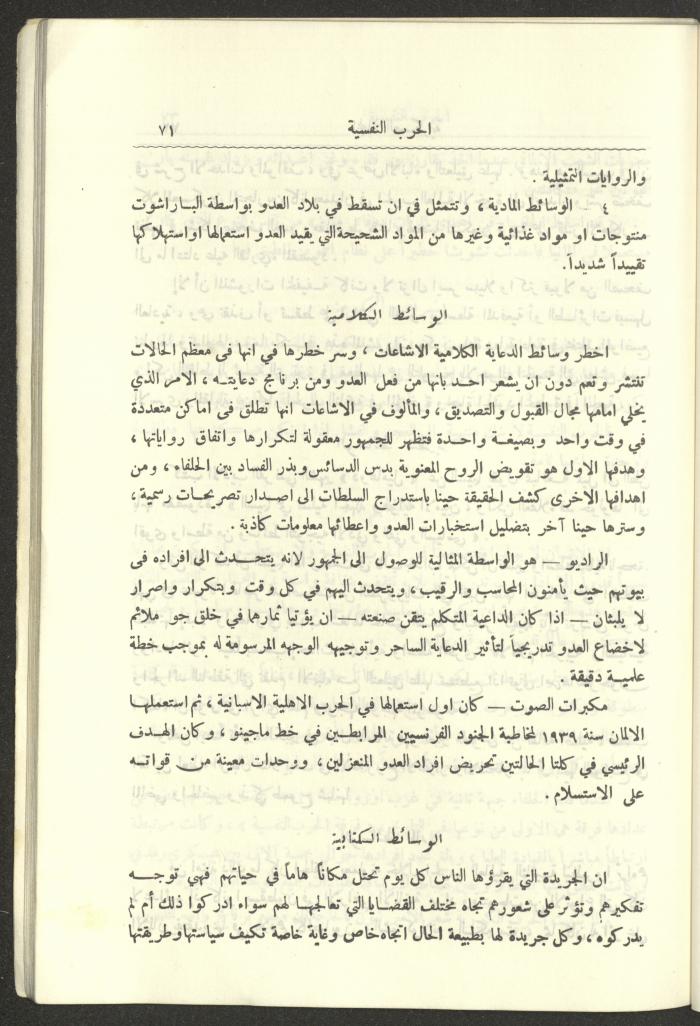 الحرب النفسية ٧١
والروايات التمثيلية .
٤ . الوسائط المادية ، وتتمثل في ان تسقط في بلاد العدو بواسطة الباراشوت
منتوجات او مواد غذائية وغيرها من المواد الشحيحةالتي يقيد العدو استعمالها اواستهلاكها
تقييداً شديداً.
الوسائط الكلامية
اخطر وسائط الدعاية الكلامية الاشاعات ، وسر خطرها في انها فى معظم الحالات
تنتشر وتعم دون ان يشعر احد بانها من فعل العدو ومن برنامج دعايته ، الامر الذي
يخلي امامها مجال القبول والتصديق ، والمألوف في الاشاعات انها تطلق فى اماكن متعددة
في وقت واحد وبصيغة واحدة فتظهر للجمهور معقولة لتكرارها واتفاق رواياتها ،
وهدفها الاول هو تقويض الروح المعنوية بدس الدسائس وبذر الفساد بين الحلفاء ، ومن
اهدافها الاخرى كشف الحقيقة حينا باستدراج السلطات الى اصدار تصريحات رسمية ،
وسترها حينا آخر بتضليل استخبارات العدو واعطائها معلومات كاذبة .
الراديو — هو الواسطة المثالية للوصول الى الجمهور لانه يتحدث الى افراده فى
بيوتهم حيث يأمنون المحاسب والرقيب ، ويتحدث اليهم في كل وقت وبتكرار واصرار
لا يلبثان — اذا كان الداعية المتكلم يتقن صنعته — ان يؤتيا ثمارها في خلق جو ملائم
لاخضاع العدو تدريجياً لتأثير الدعاية الساحر وتوجيهه الوجهه المرسومة له بموجب خطة
علمية دقيقة .
مكبرات الصوت — كان اول استعمالها في الحرب الاهلية الاسبانية ، ثم استعملها
الالمان سنة ١٩٣٩ لمخاطبة الجنود الفرنسيين المرابطين في خط ماجينو ، وكان الهدف
الرئيسي في كلتا الحالتين تحريض افراد العدو المنعزلين ، ووحدات معينة من قواته
على الاستسلام .
الوسائط الكتابية
ان الجريدة التي يقرؤها الناس كل يوم تحتل مكاناً هاماً في حياتهم فهي توجه
تفكيرهم وتؤثر على شعورهم تجاه مختلف القضايا التي تعالجها لهم سواء ادركوا ذلك أم لم
يدركوه ، وكل جريدة لها بطبيعة الحال اتجاه خاص وغاية خاصة تكيف سياستها وطريقتها